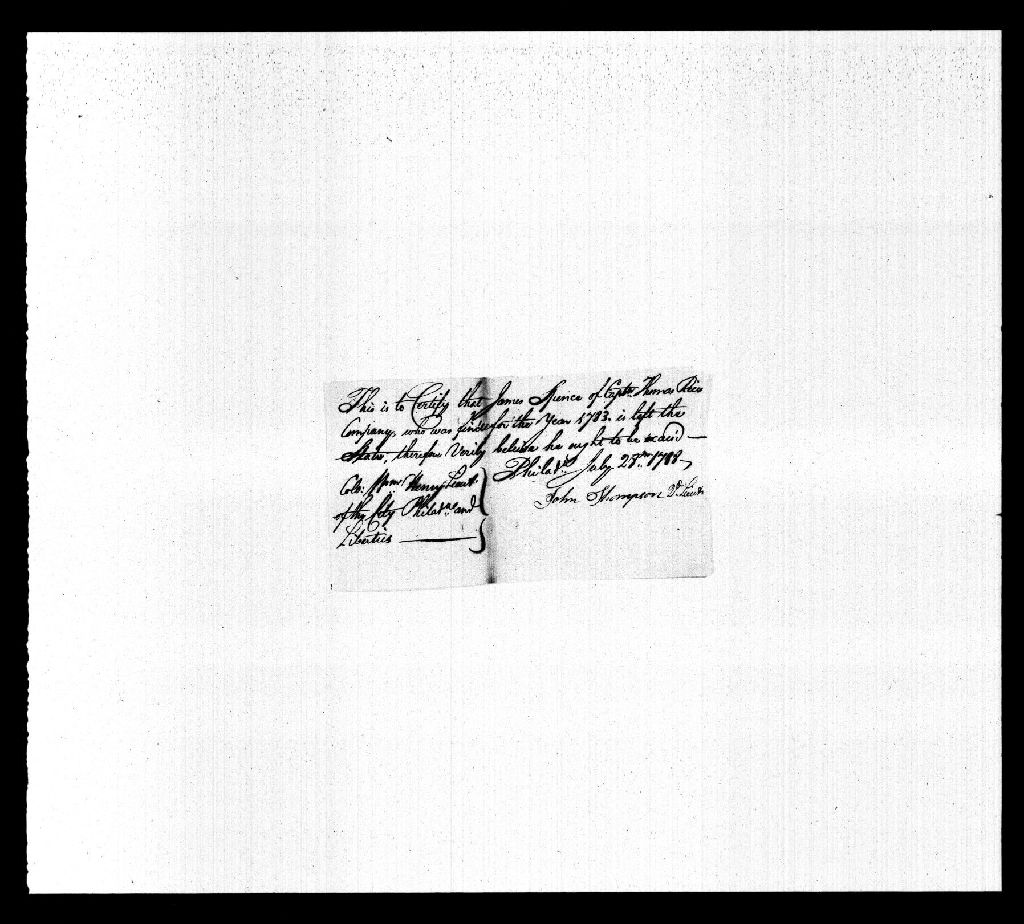 This is to Certify that James Spence of Captn. Thomas Rice
Company, who was fined for the Year 1783. is left the
State, therefore Verily beleive he ought to be
Philada. July 28th. 1788
Colo: Wm. Henry Lieut.
of the City Philada. and
Liberties
John Thompson Lieut.